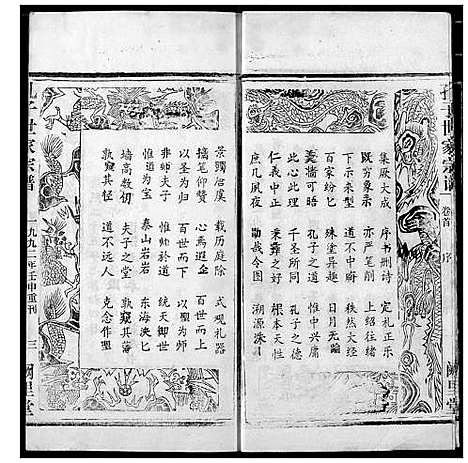 孔子世家宗譜 卷首 序 闕里堂
集厥大成 序书删诗 定礼正乐
既穷象系 亦严笔削 上绍往绪
下示来型 道不中晦 秩然大经
百家纷匕 殊塗异致 日月无
羹墙可晤 孔子之道 惟中与庸
此心此理 千圣所同 孔子之德
仁义中正 秉彝之好 根本天性
庶几夙夜 勖哉令图 溯源洙
景躅启虞 载历庭除 式观礼器
摛笔仰赞 心焉遐企 百世而上
以圣为归 百世而下 以圣为师
非师夫子 惟师於道 统天御世
惟道为宝 泰山岩岩 东海泱匕
墙高数仞 夫子之堂 孰窥其藩
孰窥其径 道不远人 克念作聖
孔子世家宗譜 一九九二年壬申重刊 三 闕里堂